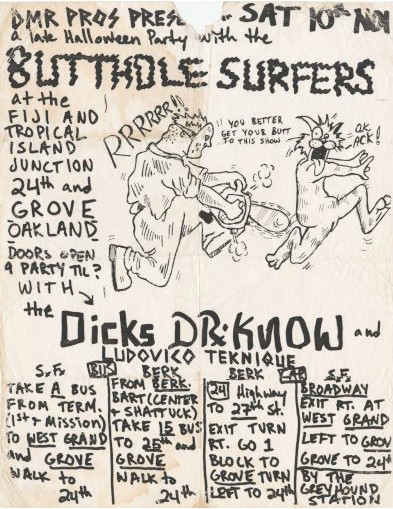 DMR PROS PRESENT SAT 10th NOV
a late Halloween Party with the
BUTTHOLE SURFERS
at the
FIJI AND
TROPICAL
ISLAND
JUNCTION
24th and
GROVE
OAKLAND
DOORS OPEN
9 PARTY TIL?
WITH
the
RRRRRR!!
YOU BETTER
GET YOUR BUTT
TO THIS SHOW
ACK!
Dicks DR. KNOW and
LUDOVICO TEKNIQUE
S.F. BUS
TAKE A BUS
FROM TERM.
(1st + Mission)
TO WEST GRAND
and GROVE
WALK to
24th
BERK
FROM BERK.
BART (CENTER
+ SHATTUCK)
TAKE 15 BUS
TO 25th and
GROVE
WALK to
24th
BERK CAR
24 Highway
TO 27th St.
EXIT TURN
RT. GO 1
BLOCK TO
GROVE TURN
LEFT TO 24th
S.F.
BROADWAY
EXIT RT. AT
WEST GRAND
LEFT TO GROV
GROVE TO 24th
BY THE
GREYHOUND
STATION